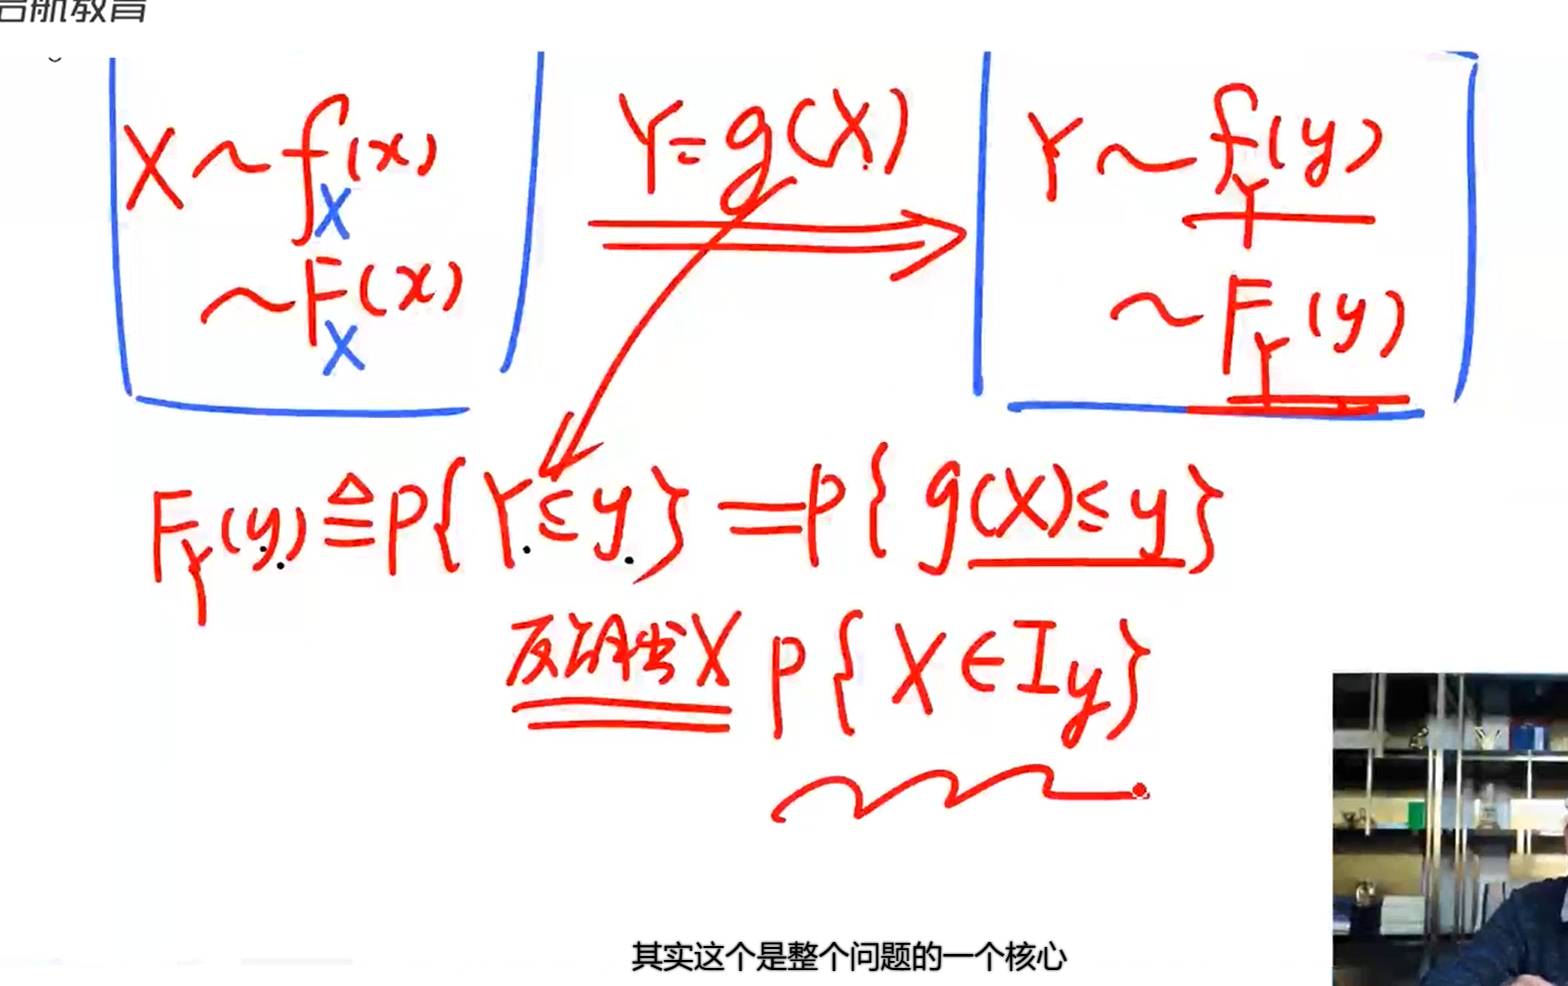 启航教育
X ~ f_X(x)
~ F_X(x)
Y = g(X)
Y ~ f_Y(y)
~ F_Y(y)
F_Y(y) ≜ P{Y ≤ y} = P{g(X) ≤ y}
反解出X P{X ∈ I_y}
其实这个是整个问题的一个核心